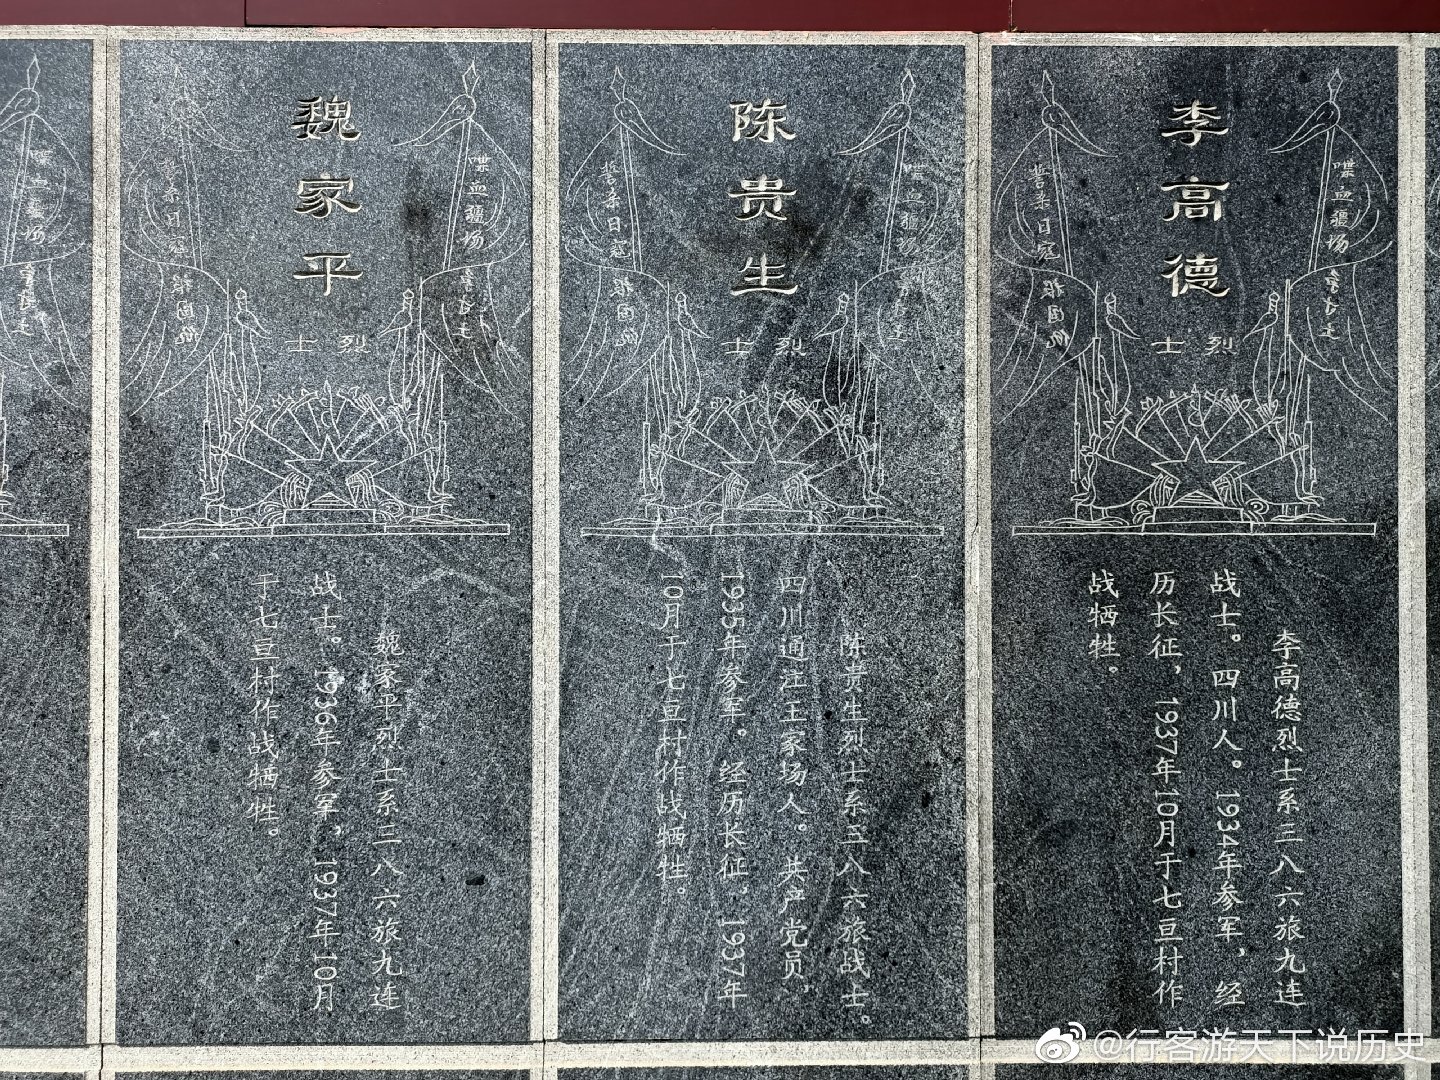 李高德
烈士
誓杀日寇
报国仇
喋血疆场
李高德烈士系三八六旅九连
战士。四川人。1934年参军，经
历长征，1937年10月于七亘村作
战牺牲。
陈贵生
烈士
誓杀日寇
报国仇
喋血疆场
陈贵生烈士系三八六旅战士。
四川通江王家场人。共产党员，
1935年参军。经历长征，1937年
10月于七亘村作战牺牲。
魏家平
烈士
誓杀日寇
报国仇
喋血疆场
魏家平烈士系三八六旅九连
战士。1936年参军，1937年10月
于七亘村作战牺牲。
喋血疆场
@行客游天下说历史